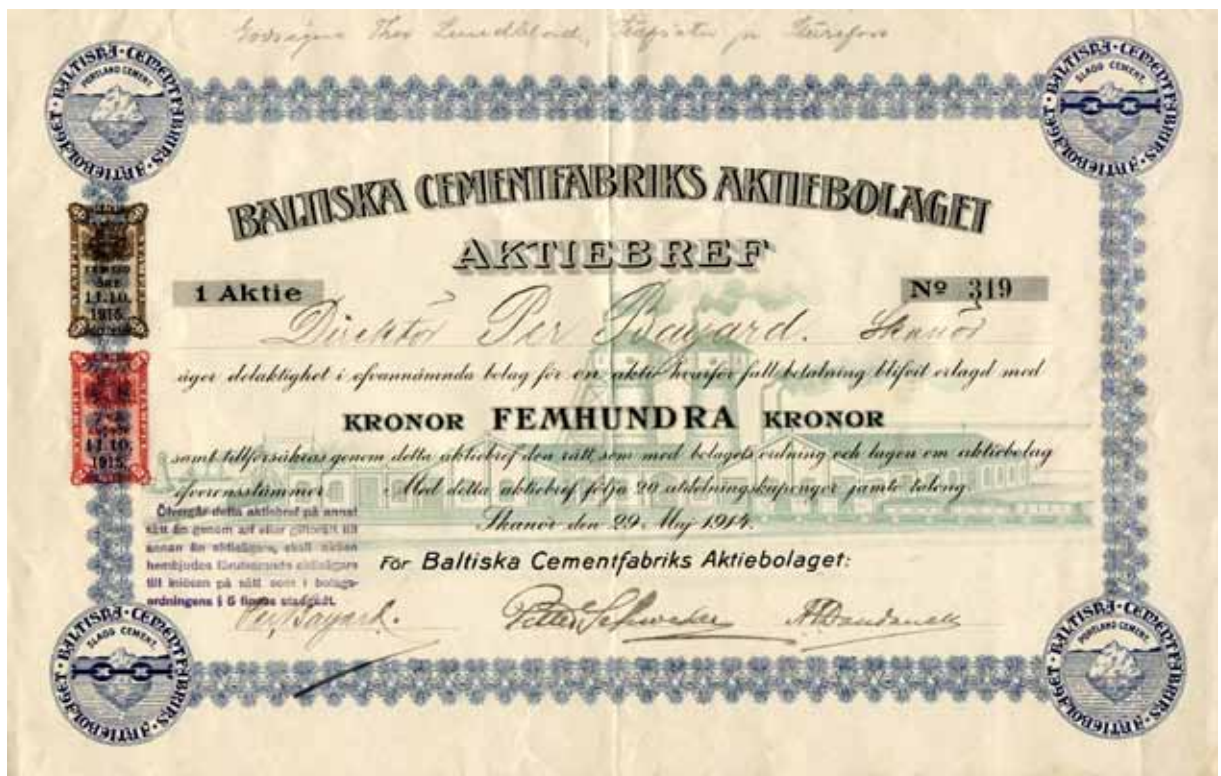 BALTISKA CEMENTFABRIKS AKTIEBOLAGET
PORTLAND CEMENT
BALTISKA CEMENTFABRIKS AKTIEBOLAGET
SLAGG CEMENT.
BALTISKA CEMENTFABRIKS AKTIEBOLAGET
AKTIEBREF
1 Aktie
Nº 319
Direktör Per Bayard. Skanör
äger delaktighet i ofvannämnda bolag för en aktie hvarför full betalning blifvit erlagd med
KRONOR FEMHUNDRA KRONOR
samt tillförsäkras genom detta aktiebref den rätt, som med bolagets ordning och lagen om aktiebolag
öfverensstämmer. Med detta aktiebref följa 20 utdelningskuponger jämte talong.
Skanör den 29 Maj 1914.
11.10.
1915.
11.10.
1915.
Öfvergår detta aktiebref på annat
sätt än genom arf eller giftorätt till
annan än aktieägare, skall aktien
hembjudas förutvarande aktieägare
till inlösen på sätt som i bolags-
ordningens § 6 finnes stadgadt.
För Baltiska Cementfabriks Aktiebolaget:
Per Bayard.
BALTISKA CEMENTFABRIKS AKTIEBOLAGET
SLAGG CEMENT.
BALTISKA CEMENTFABRIKS AKTIEBOLAGET
PORTLAND CEMENT.